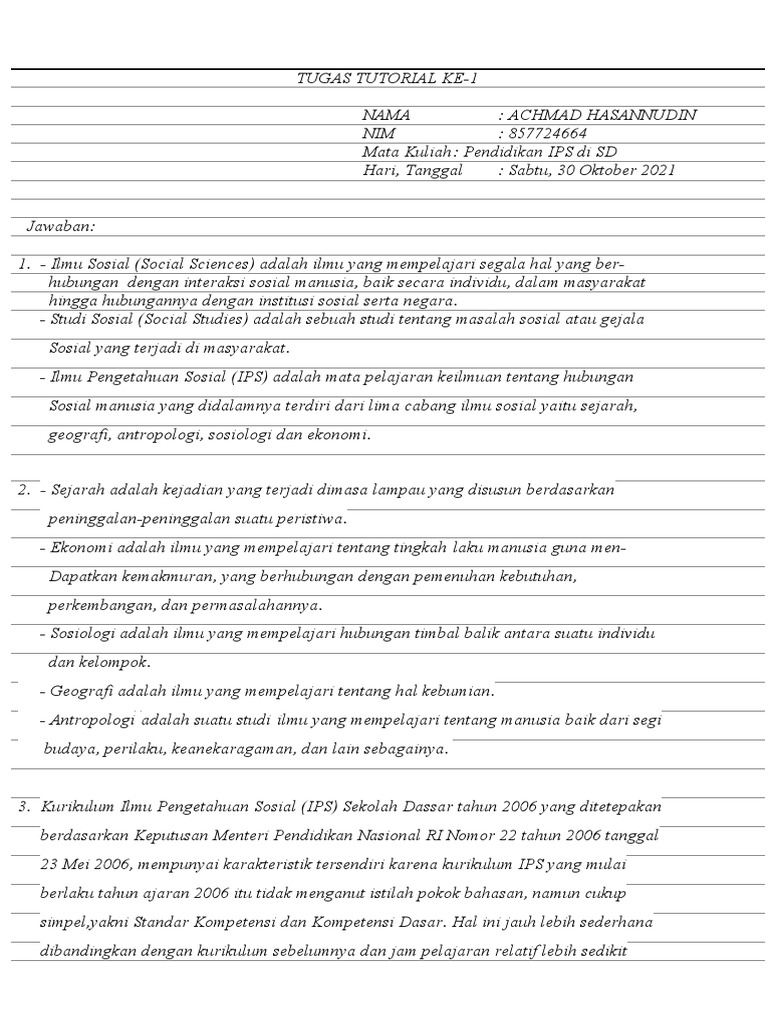 TUGAS TUTORIAL KE-1
NAMA : ACHMAD HASANNUDIN
NIM : 857724664
Mata Kuliah : Pendidikan IPS di SD
Hari, Tanggal : Sabtu, 30 Oktober 2021
Jawaban:
1. - Ilmu Sosial (Social Sciences) adalah ilmu yang mempelajari segala hal yang ber-
hubungan dengan interaksi sosial manusia, baik secara individu, dalam masyarakat
hingga hubungannya dengan institusi sosial serta negara.
- Studi Sosial (Social Studies) adalah sebuah studi tentang masalah sosial atau gejala
Sosial yang terjadi di masyarakat.
- Ilmu Pengetahuan Sosial (IPS) adalah mata pelajaran keilmuan tentang hubungan
Sosial manusia yang didalamnya terdiri dari lima cabang ilmu sosial yaitu sejarah,
geografi, antropologi, sosiologi dan ekonomi.
2. - Sejarah adalah kejadian yang terjadi dimasa lampau yang disusun berdasarkan
peninggalan-peninggalan suatu peristiwa.
- Ekonomi adalah ilmu yang mempelajari tentang tingkah laku manusia guna men-
Dapatkan kemakmuran, yang berhubungan dengan pemenuhan kebutuhan,
perkembangan, dan permasalahannya.
- Sosiologi adalah ilmu yang mempelajari hubungan timbal balik antara suatu individu
dan kelompok.
- Geografi adalah ilmu yang mempelajari tentang hal kebumian.
- Antropologi adalah suatu studi ilmu yang mempelajari tentang manusia baik dari segi
budaya, perilaku, keanekaragaman, dan lain sebagainya.
3. Kurikulum Ilmu Pengetahuan Sosial (IPS) Sekolah Dassar tahun 2006 yang ditetepakan
berdasarkan Keputusan Menteri Pendidikan Nasional RI Nomor 22 tahun 2006 tanggal
23 Mei 2006, mempunyai karakteristik tersendiri karena kurikulum IPS yang mulai
berlaku tahun ajaran 2006 itu tidak menganut istilah pokok bahasan, namun cukup
simpel,yakni Standar Kompetensi dan Kompetensi Dasar. Hal ini jauh lebih sederhana
dibandingkan dengan kurikulum sebelumnya dan jam pelajaran relatif lebih sedikit